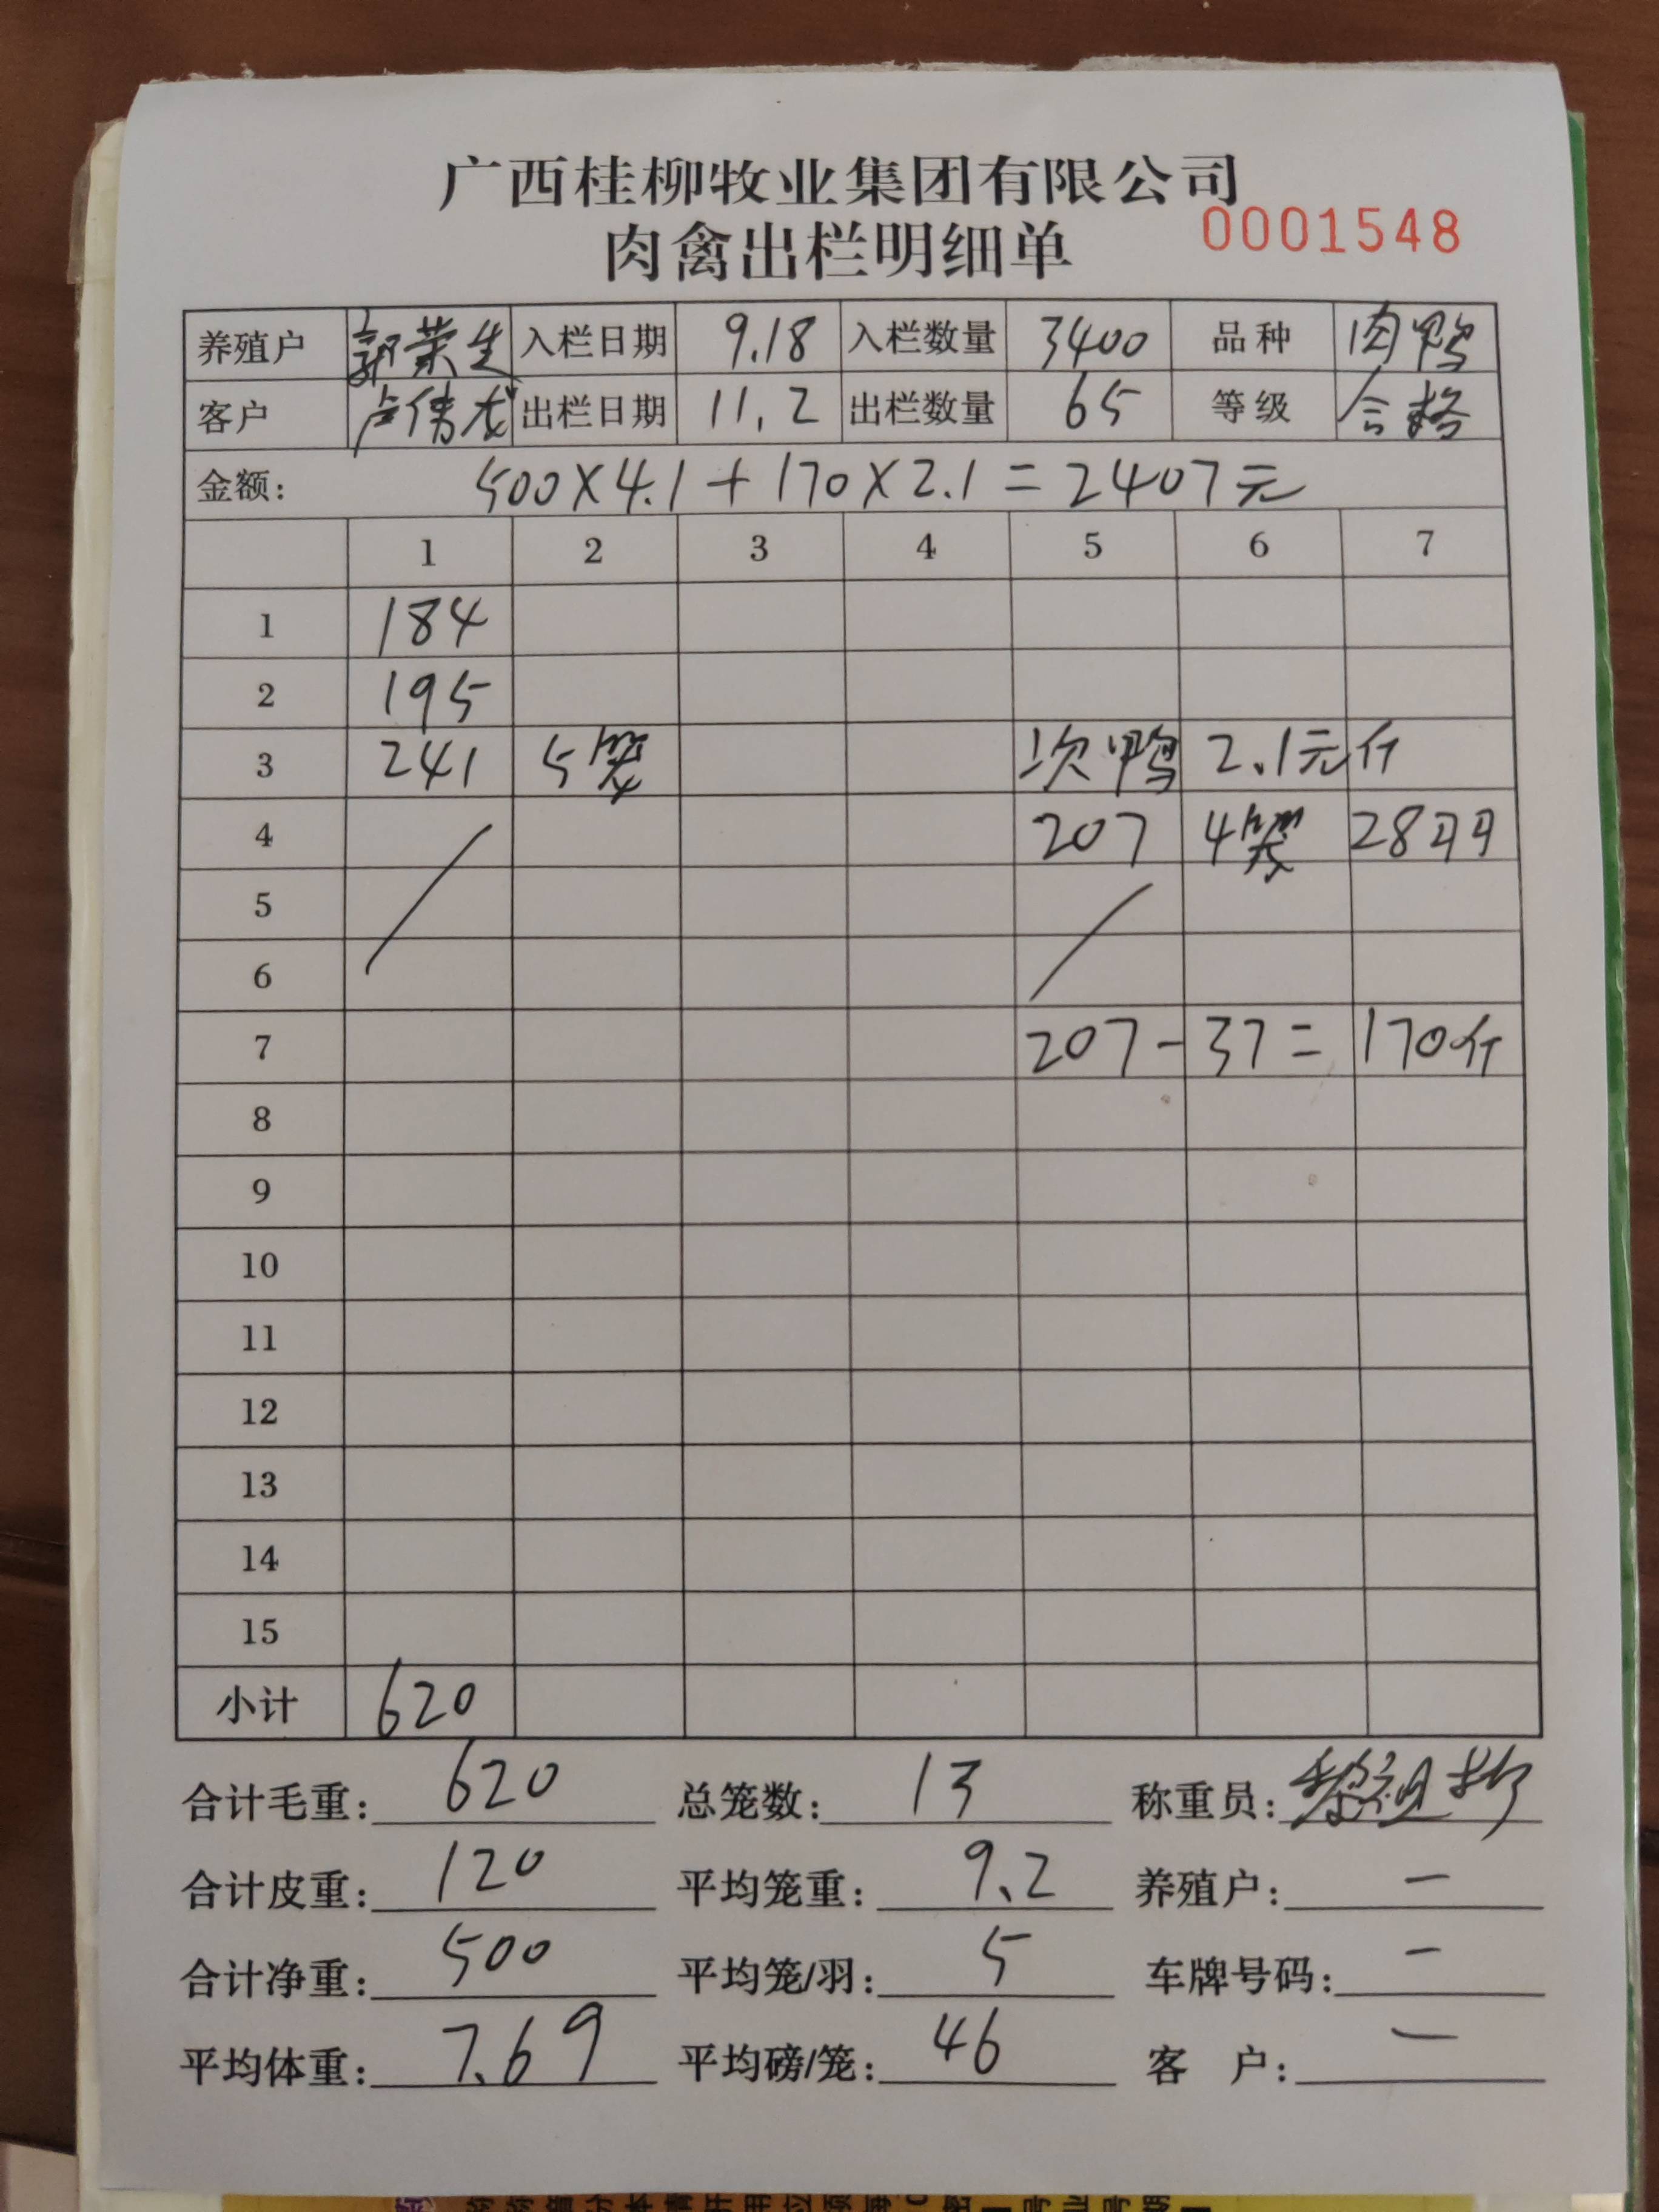 广西桂柳牧业集团有限公司
肉禽出栏明细单 0001548
养殖户 郭荣生 入栏日期 9.18 入栏数量 3400 品种 肉鸭
客户 卢伟龙 出栏日期 11.2 出栏数量 65 等级 合格
金额: 500×4.1+170×2.1=2407元
1 2 3 4 5 6 7
1 184
2 195
3 241 5笼 次鸭 2.1元斤
4 207 4笼 28羽
5
6
7 207-37=170斤
8
9
10
11
12
13
14
15
小计 620
合计毛重: 620 总笼数: 13 称重员:
合计皮重: 120 平均笼重: 9.2 养殖户: —
合计净重: 500 平均笼/羽: 5 车牌号码: —
平均体重: 7.69 平均磅/笼: 46 客 户: —